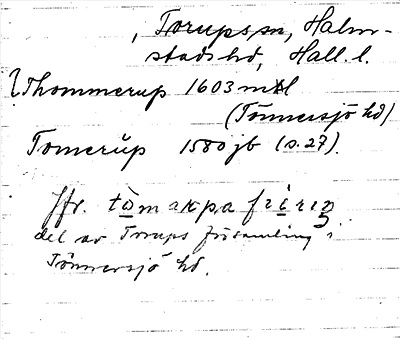 , Torups sn, Halm-
stads hd, Hall. l.
? Thommerup 1603 mtl
(Tönnersjö hd)
Tomerup 1580 jb (s. 27).
Jfr. tomarpa
del av Torups församling i
Tönnersjö hd.